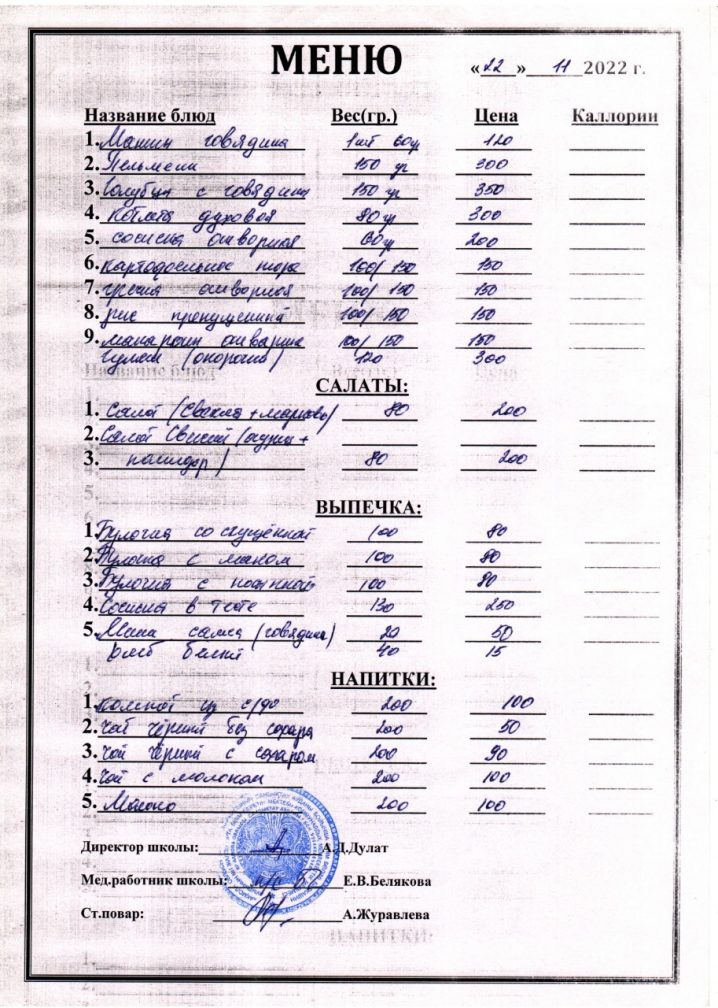 МЕНЮ «22» 11 2022 г.
Название блюд Вес(гр.) Цена Каллории
1. Манты говядина 1шт 60гр 120
2. Пельмени 150 гр 300
3. Голубцы с говядины 150 гр 350
4. Котлета духовая 80гр 300
5. сосиска отварная 60гр 200
6. картофельное пюре 100/ 150 150
7. гречка отварная 100/ 150 150
8. рис припущенный 100/ 150 150
9. макароны отварные 100/ 150 150
Гуляш (окорочка) 120 300
САЛАТЫ:
1. Салат (Свекла + морковь) 80 200
2. Салат Свежий (огурцы +
3. помидор) 80 200
ВЫПЕЧКА:
1. Булочка со сгущёнкой 100 80
2. Булочка с маком 100 80
3. Булочка с 100 80
4. Сосиска в тесте 130 250
5. Мини самса (говядина) 50
Хлеб белый 40 15
НАПИТКИ:
1. Компот из с/ф 200 100
2. Чай чёрный без сахара 200 50
3. Чай чёрный с сахаром 200 90
4. Чай с молоком 200 100
5. Молоко 200 100
Директор школы: А.Д.Дулат
Мед.работник школы: Е.В.Белякова
Ст.повар: А.Журавлева